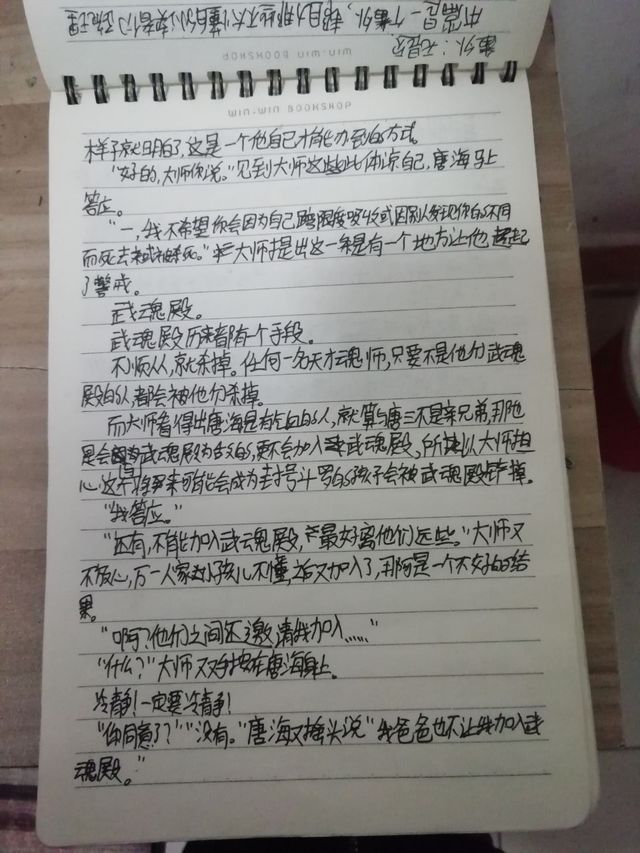 事外：天是
WIN-WIN BOOKSHOP
WIN-WIN BOOKSHOP
样子就明白了,这是一个他自己才能办到的方式。
"好的,大师你说。"见到大师这些如此体谅自己,唐海马上
答应。
"一,我不希望你会因为自己跨限度吸收或因别人发现你的不同
而死去或被杀死。"大师提出这一条是有一个地方让他提起
了警戒。
武魂殿。
武魂殿历来都有个手段。
不顺从,就杀掉。任何一名天才魂师,只要不是他们武魂
殿的人都会被他们杀掉。
而大师看得出唐海是有血的人,就算与唐三不是亲兄弟,那也
是会武魂殿为的,更不会加入武魂殿,所以大师担
心这将来可能会成为封号斗罗的孩子会被武魂殿掉。
"我答应。"
"还有,不能加入武魂殿,最好离他们远些。"大师又
不放心,万一人家小孩儿不懂,又加入了,那可是一个不好的结
果。
"啊?他们之间还邀请我加入……"
"什么?"大师又双手按在唐海身上。
冷静!一定要冷静!
"你同意了?""没有。"唐海又摇头说"我爸爸也不让我加入武
魂殿。"